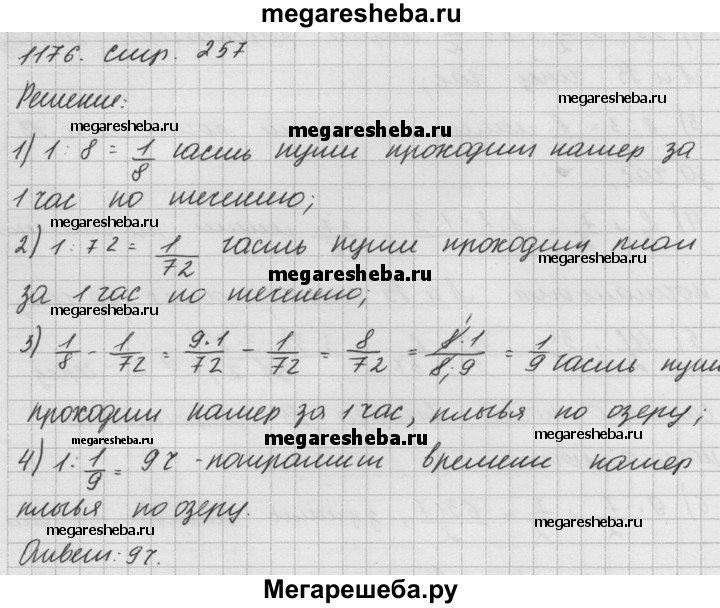 megaresheba.ru
1176. стр. 257
Решение:
megaresheba.ru
megaresheba.ru
megaresheba.ru
1) 1 : 8 = 1/8 часть пути проходит катер за
1 час по течению;
megaresheba.ru
2) 1 : 72 = 1/72 часть пути проходит плот
megaresheba.ru
megaresheba.ru
за 1 час по течению;
3) 1/8 - 1/72 = 9·1/72 - 1/72 = 8/72 = 8·1/8·9 = 1/9 часть пути
проходит катер за 1 час, плывя по озеру;
megaresheba.ru
megaresheba.ru
megaresheba.ru
4) 1 : 1/9 = 9 ч - потратит времени катер
плывя по озеру.
megaresheba.ru
megaresheba.ru
Ответ: 9 ч.
Мегарешеба.ру